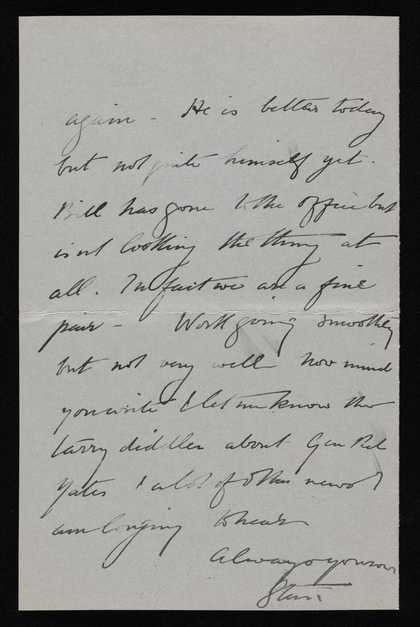 again - He is better today
but not quite himself yet.
Bill has gone to the office but
is not looking the thing at
all. In fact we are a fine
pair - Work going smoothly
but not very well now mind
you write & let me know the
tarry diddles about Gen Rel
Yates & a lot of other news I
am longing to hear
Always yours